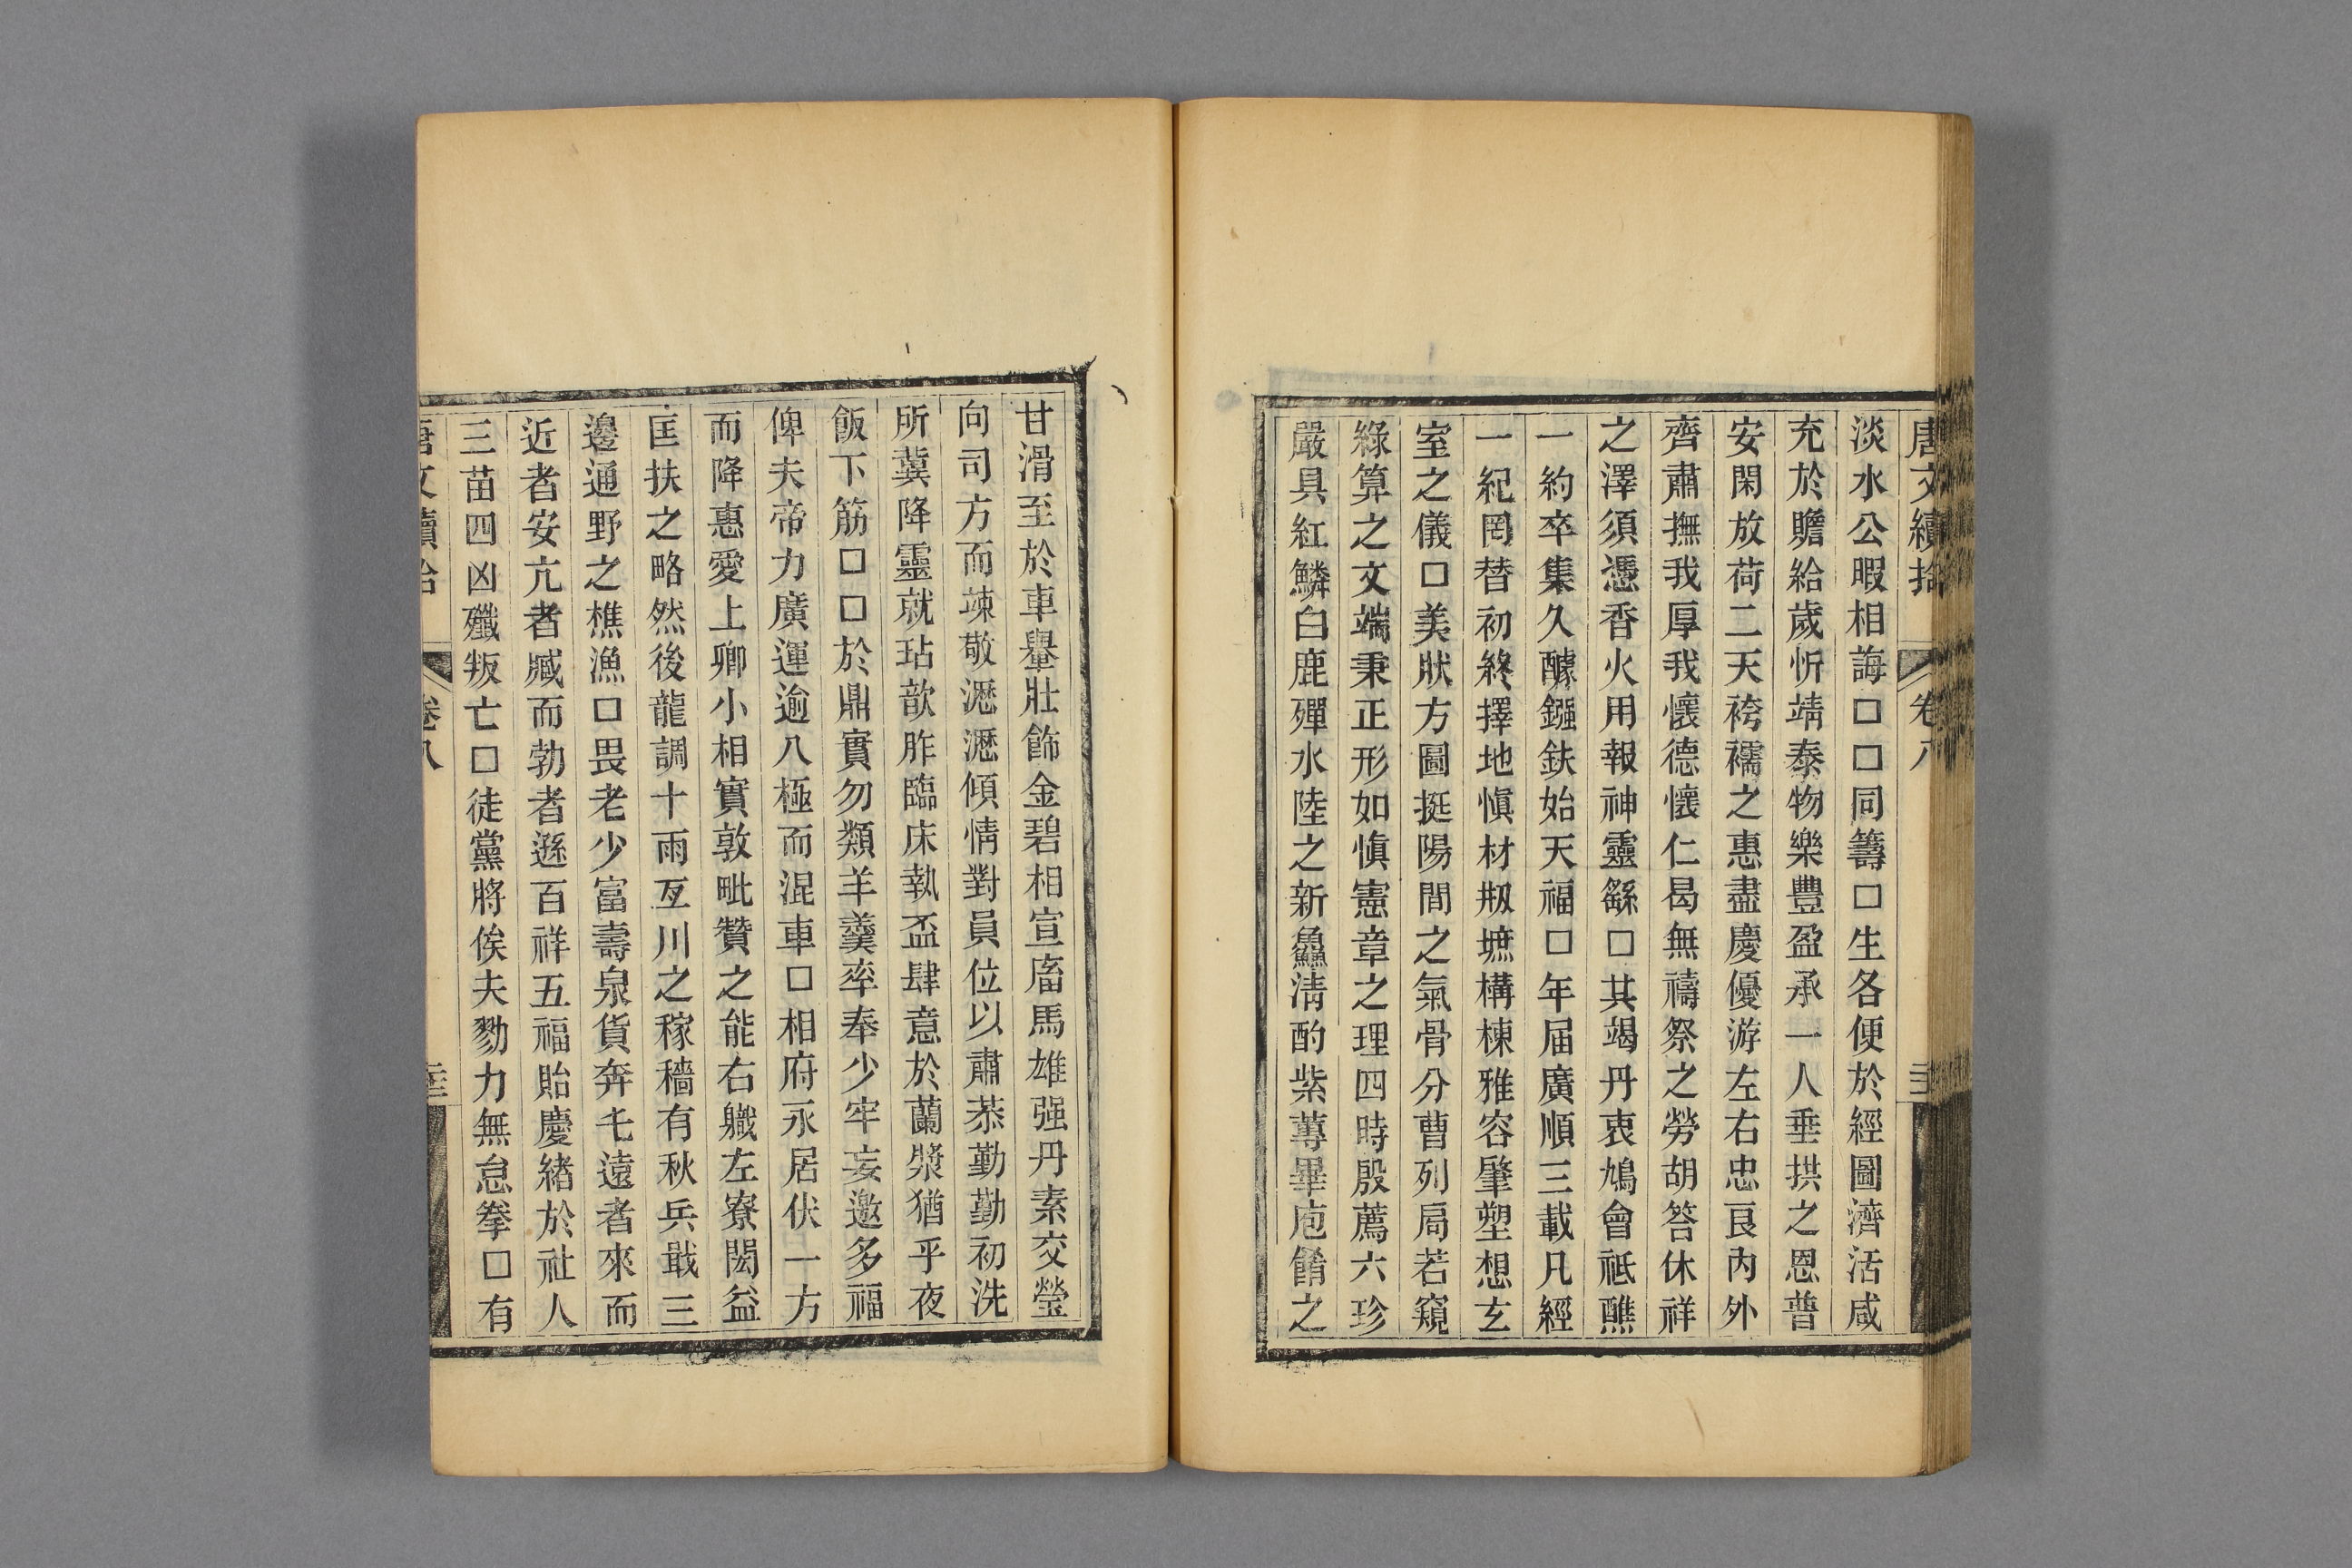 唐文續拾
卷八
淡水公暇相誨□□同籌□生各便於經圖濟活咸
充於贍給歲忻靖泰物樂豐盈承一人垂拱之恩普
安閑放荷二天袴襦之惠盡慶優游左右忠良內外
齊肅撫我厚我懷德懷仁曷無禱祭之勞胡答休祥
之澤須憑香火用報神靈繇□其竭丹衷鳩會祗醮
一約卒集久醵鏹鈇始天福□年届廣順三載凡經
一紀罔替初終擇地愼材剏墲構棟雅容肇塑想玄
室之儀□美狀方圖挺陽間之氣骨分曹列局若窺
綠算之文端秉正形如愼憲章之理四時殷薦六珍
嚴具紅鱗白鹿殫水陸之新鱻淸酌紫蓴畢庖餚之
甘滑至於車轝壯飾金碧相宣廄馬雄强丹素交瑩
向司方而竦敬瀝瀝傾情對員位以肅恭勤勤初洗
所冀降靈就玷歆胙臨床執盃肆意於蘭漿猶乎夜
飯下筋□□於鼎實勿類羊羹率奉少牢妄邀多福
俾夫帝力廣運逾八極而混車□相府永居伏一方
而降惠愛上卿小相實敦毗贊之能右軄左寮閎益
匡扶之略然後龍調十雨亙川之稼穡有秋兵戢三
邊通野之樵漁□畏老少富壽泉貨奔乇遠者來而
近者安亢者臧而勃者遜百祥五福貽慶緒於社人
三苗四凶殲叛亡□徒黨將俟夫勠力無怠拳□有
唐文續拾
卷八